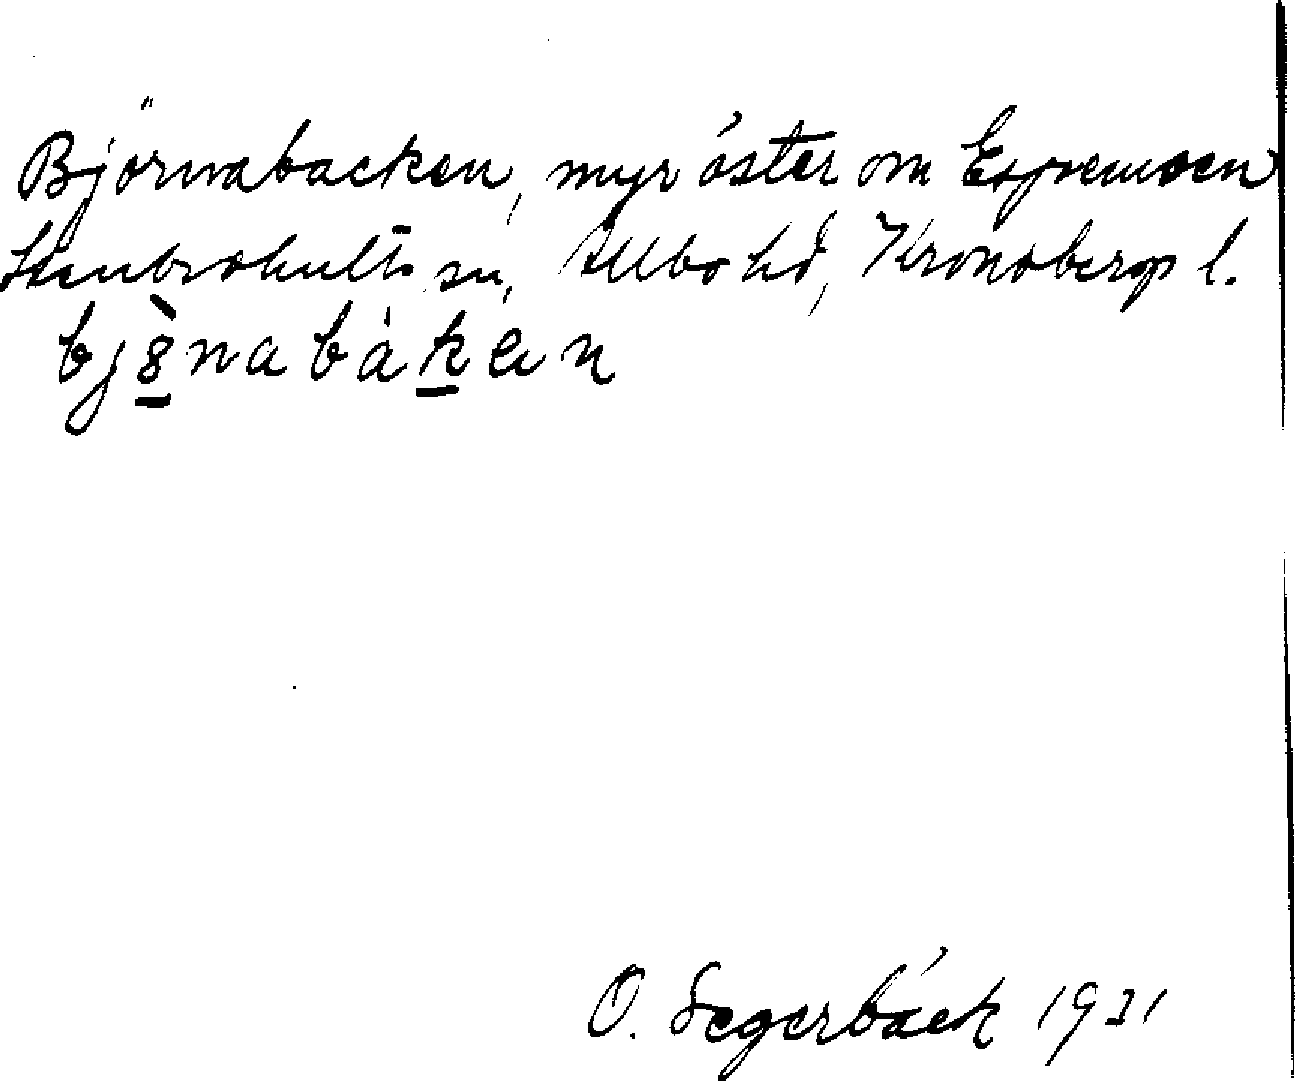 Björnabacken, myr öster om
Stenbrohults sn, Allbo hd, Kronobergs l.
bjö̀nabàken
O. Segerbäck 1931